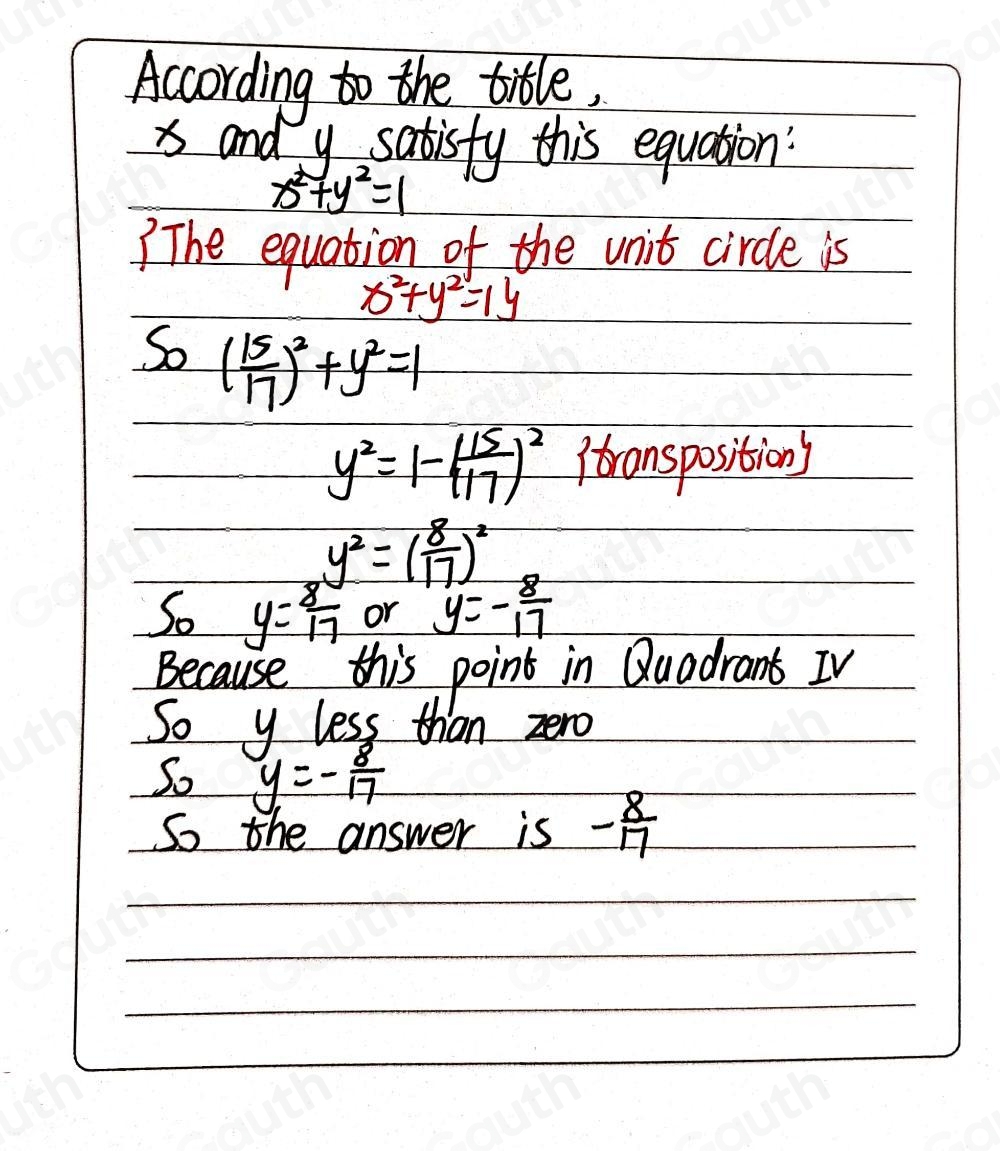 According to the title,
x and y satisfy this equation:
x²+y²=1
{The equation of the unit circle is
x²+y²=1}
So (15/17)²+y²=1
y²=1-(15/17)² {transposition}
y²=(8/17)²
So y=8/17 or y=-8/17
Because this point in Quadrant IV
So y less than zero
So y=-8/17
So the answer is -8/17
Gauth